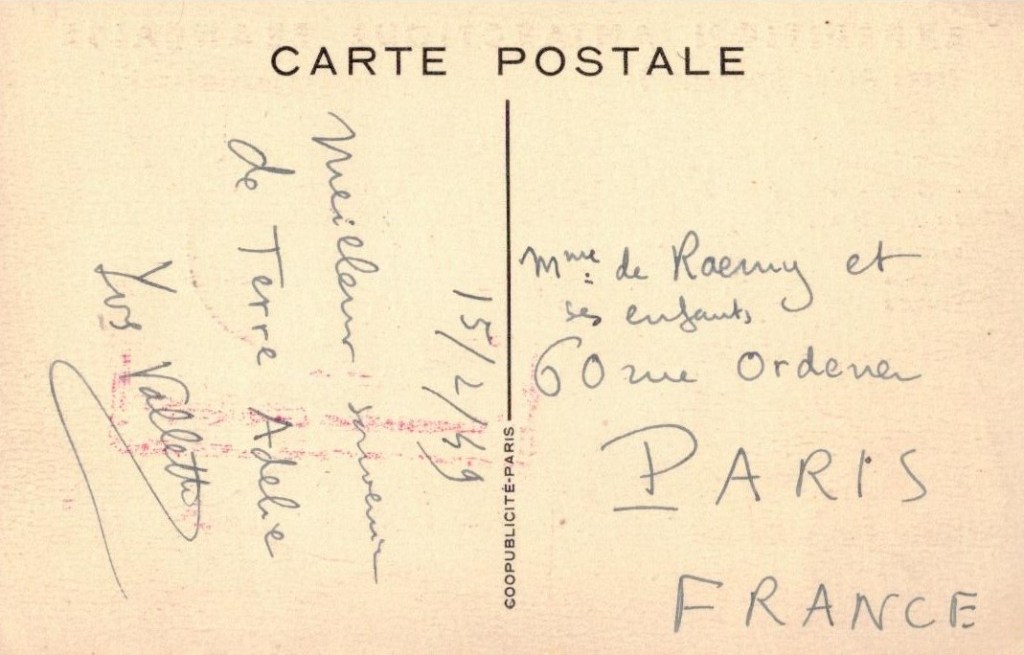 CARTE POSTALE
15/2/59
Meilleur souvenir
de Terre Adélie
Yves Vallette
Mme de Raemy et
ses enfants
60 rue Ordener
PARIS
FRANCE
COOPUBLICITÉ-PARIS